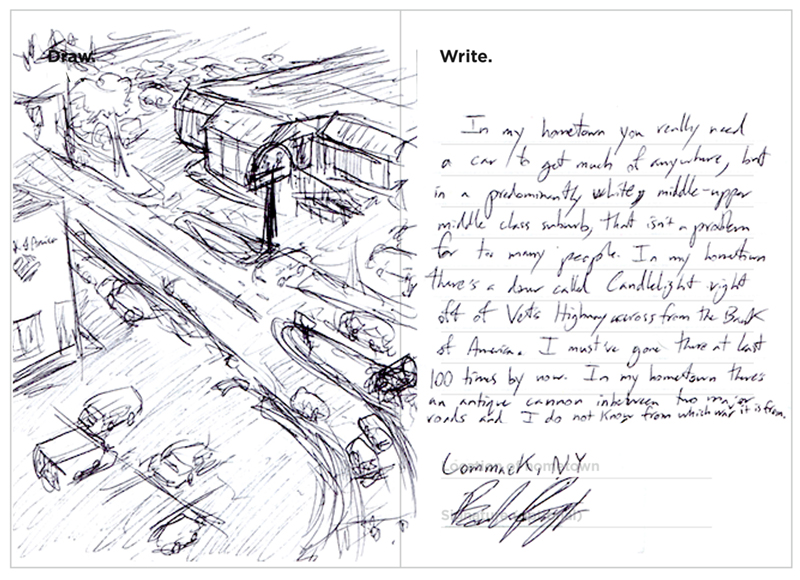 Draw.
Write.
In my hometown you really need
a car to get much of anywhere, but
in a predominantly white, middle-upper
middle class suburb, that isn't a problem
for too many people. In my hometown
there's a diner called Candlelight right
off of Vets Highway across from the Bank
of America. I must've gone there at least
100 times by now. In my hometown there's
an antique cannon inbetween two major
roads and I do not know from which war it is from.
Commack, NY
Location of hometown